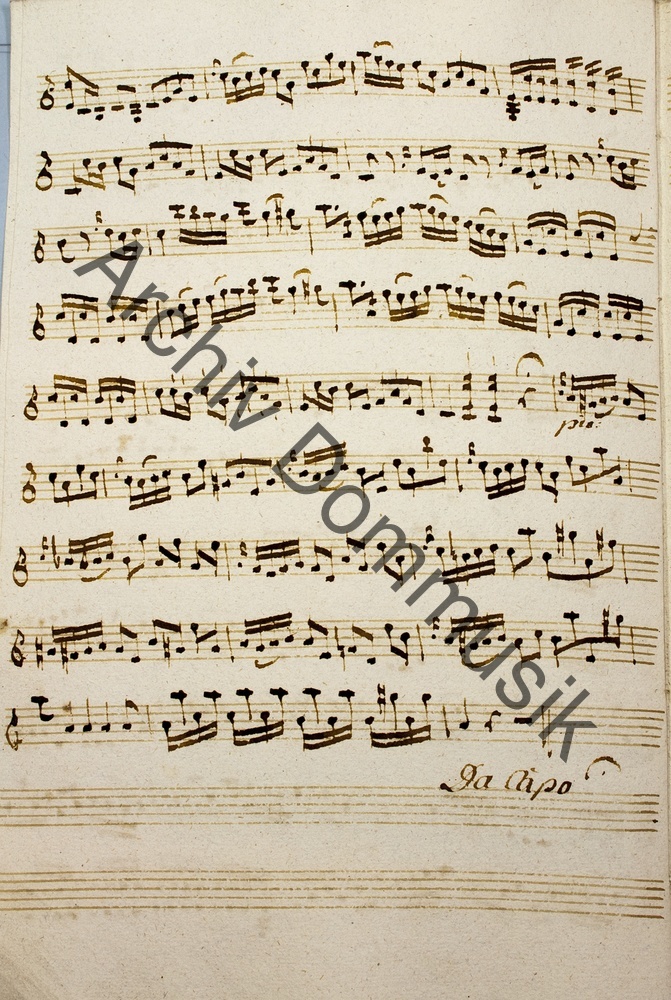 pia:
Da Capo
Archiv Dommusik